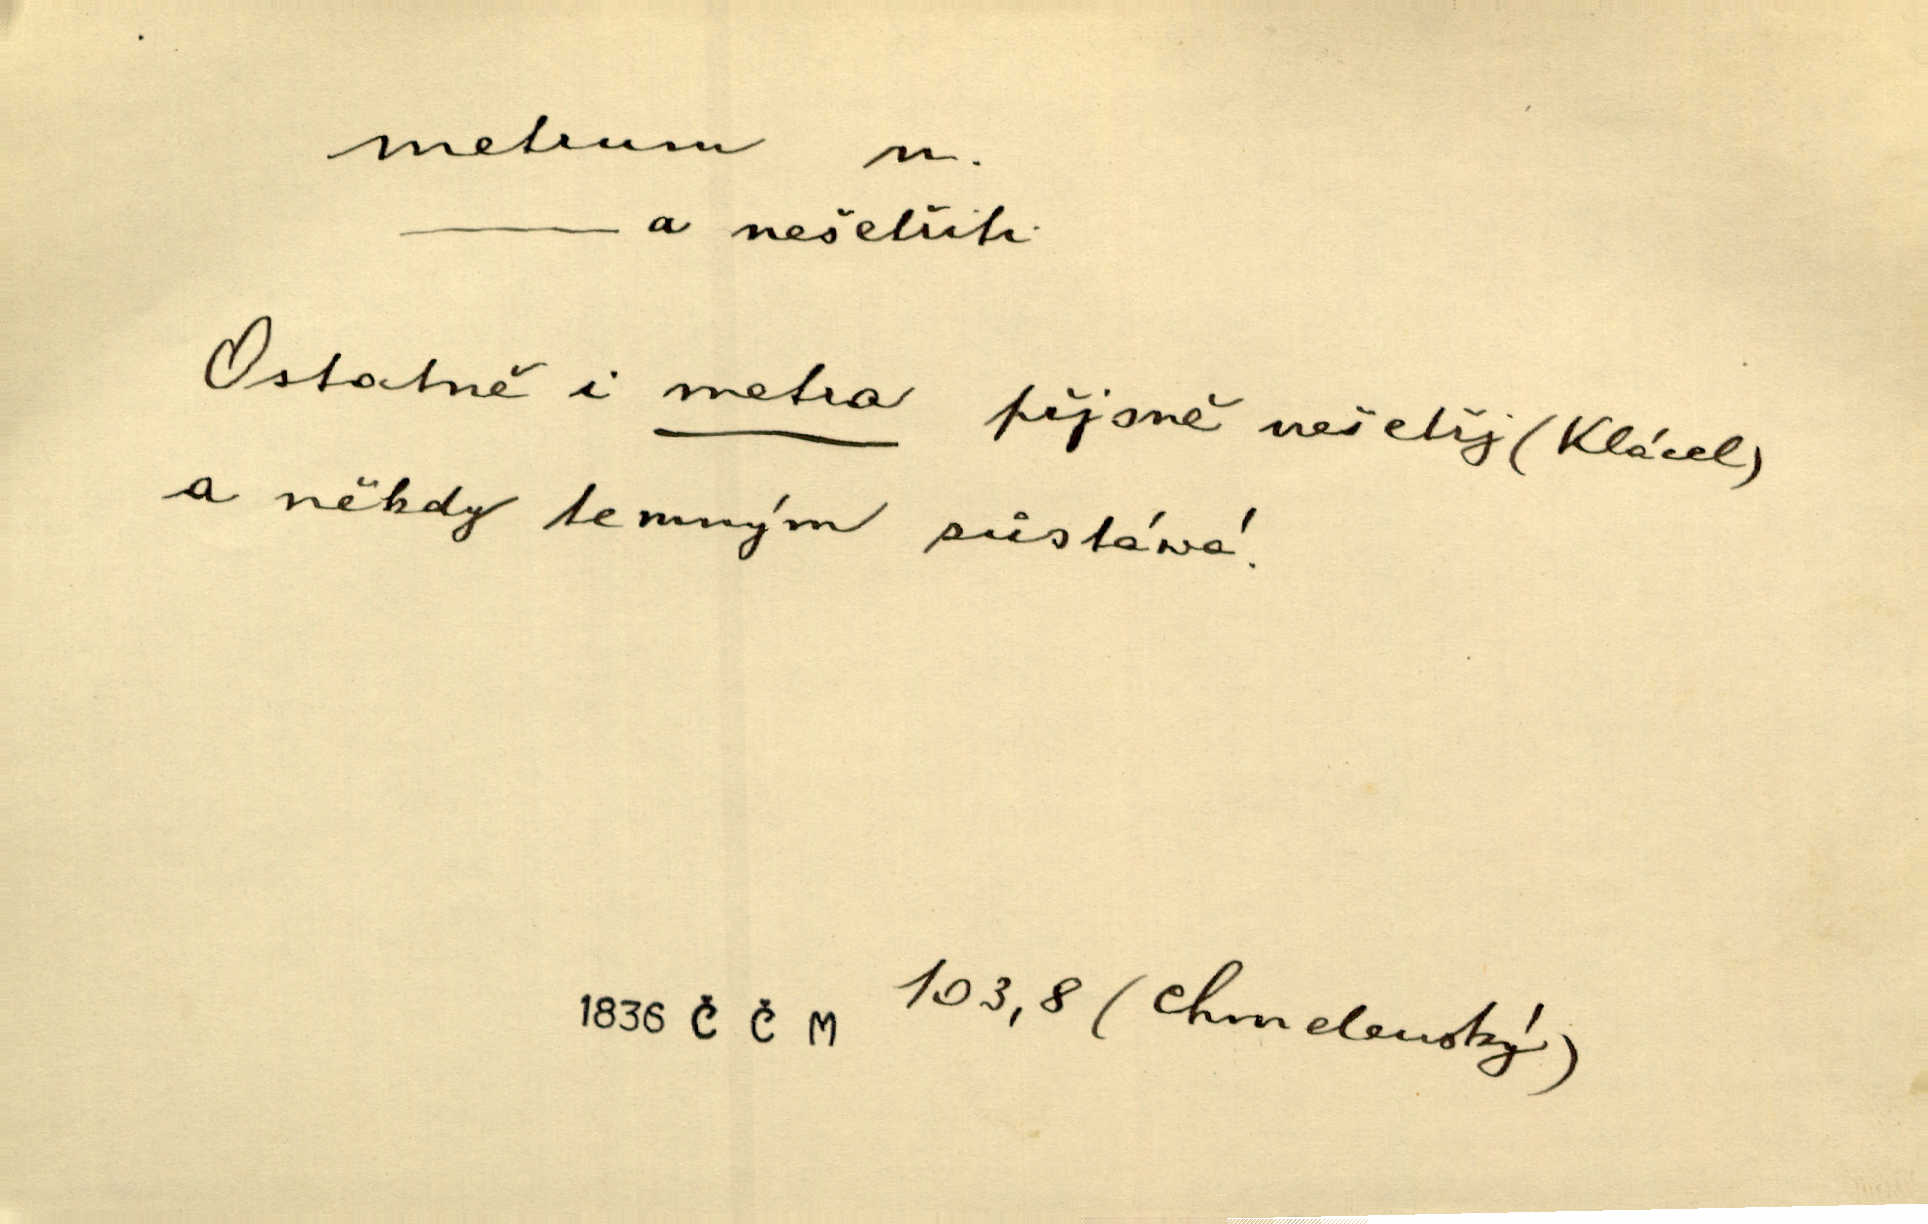 metrum n.
—— a nešetřiti
Ostatně i metra přjsně nešetřj (Klácel)
a někdy temným zůstáwá.
1836 Č Č M 103,8 (Chmelenský)